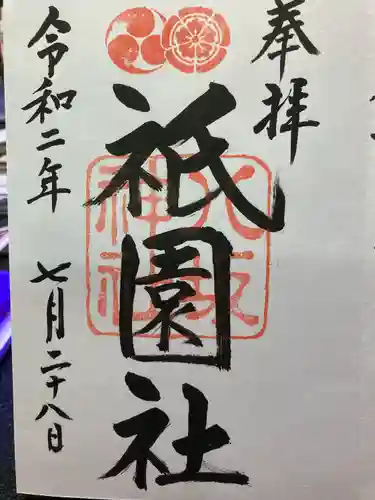 奉拝
八坂神社
祇園社
令和二年 七月二十八日